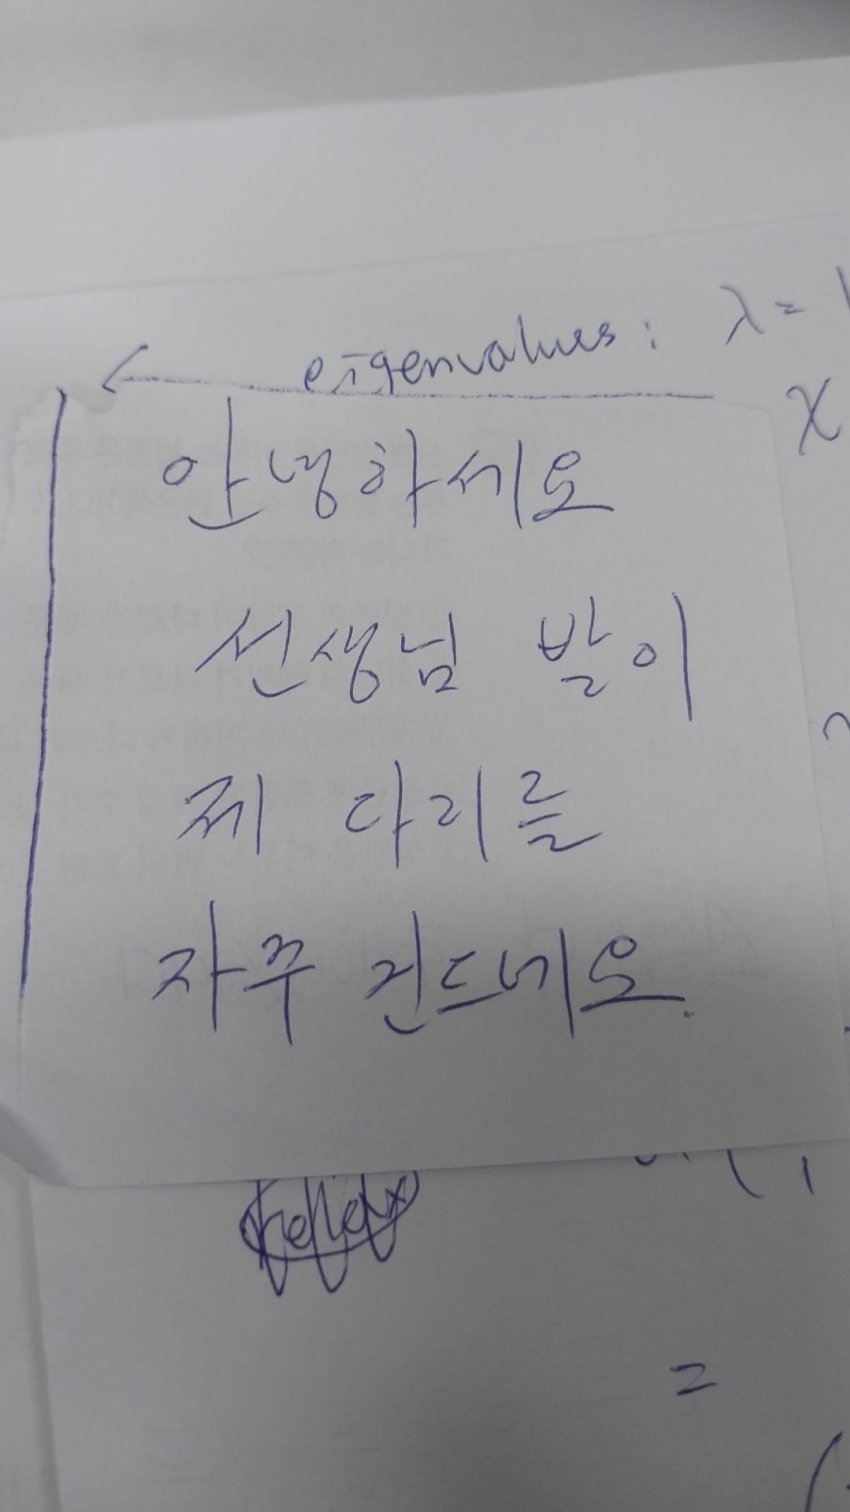 eigenvalues: λ =
x
안녕하세요
선생님 발이
제 다리를
자꾸 건드네요.
=